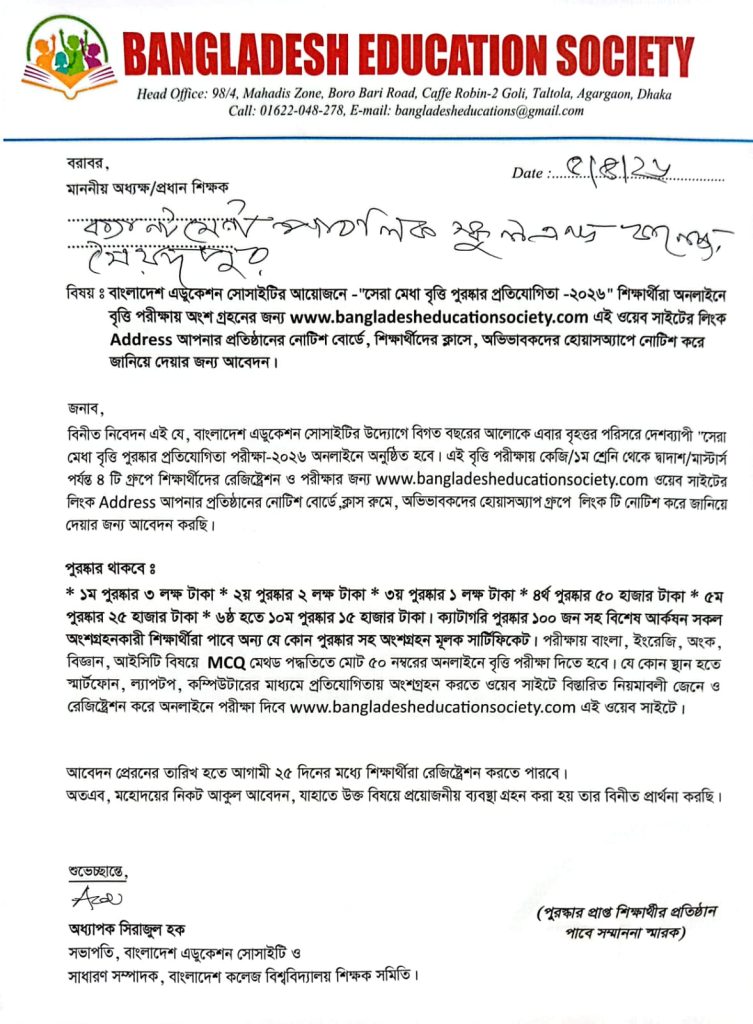 BANGLADESH EDUCATION SOCIETY
Head Office: 98/4, Mahadis Zone, Boro Bari Road, Caffe Robin-2 Goli, Taltola, Agargaon, Dhaka
Call: 01622-048-278, E-mail: bangladesheducations@gmail.com
বরাবর,
Date :
মাননীয় অধ্যক্ষ/প্রধান শিক্ষক
পাবলিক স্কুল এন্ড কলেজ,
সৈয়দপুর
বিষয় ঃ বাংলাদেশ এডুকেশন সোসাইটির আয়োজনে -"সেরা মেধা বৃত্তি পুরষ্কার প্রতিযোগিতা -২০২৬" শিক্ষার্থীরা অনলাইনে
বৃত্তি পরীক্ষায় অংশ গ্রহনের জন্য www.bangladesheducationsociety.com এই ওয়েব সাইটের লিংক
Address আপনার প্রতিষ্ঠানের নোটিশ বোর্ডে, শিক্ষার্থীদের ক্লাসে, অভিভাবকদের হোয়াসঅ্যাপে নোটিশ করে
জানিয়ে দেয়ার জন্য আবেদন।
জনাব,
বিনীত নিবেদন এই যে, বাংলাদেশ এডুকেশন সোসাইটির উদ্যোগে বিগত বছরের আলোকে এবার বৃহত্তর পরিসরে দেশব্যাপী "সেরা
মেধা বৃত্তি পুরষ্কার প্রতিযোগিতা পরীক্ষা-২০২৬ অনলাইনে অনুষ্ঠিত হবে। এই বৃত্তি পরীক্ষায় কেজি/১ম শ্রেনি থেকে দ্বাদশ/মাস্টার্স
পর্যন্ত ৪ টি গ্রুপে শিক্ষার্থীদের রেজিষ্ট্রেশন ও পরীক্ষার জন্য www.bangladesheducationsociety.com ওয়েব সাইটের
লিংক Address আপনার প্রতিষ্ঠানের নোটিশ বোর্ডে,ক্লাস রুমে, অভিভাবকদের হোয়াসঅ্যাপ গ্রুপে লিংক টি নোটিশ করে জানিয়ে
দেয়ার জন্য আবেদন করছি।
পুরষ্কার থাকবে ঃ
* ১ম পুরষ্কার ৩ লক্ষ টাকা * ২য় পুরষ্কার ২ লক্ষ টাকা * ৩য় পুরষ্কার ১ লক্ষ টাকা * ৪র্থ পুরষ্কার ৫০ হাজার টাকা * ৫ম
পুরষ্কার ২৫ হাজার টাকা * ৬ষ্ঠ হতে ১০ম পুরষ্কার ১৫ হাজার টাকা। ক্যাটাগরি পুরষ্কার ১০০ জন সহ বিশেষ আর্কষন সকল
অংশগ্রহনকারী শিক্ষার্থীরা পাবে অন্য যে কোন পুরষ্কার সহ অংশগ্রহন মূলক সার্টিফিকেট। পরীক্ষায় বাংলা, ইংরেজি, অংক,
বিজ্ঞান, আইসিটি বিষয়ে MCQ মেথড পদ্ধতিতে মোট ৫০ নম্বরের অনলাইনে বৃত্তি পরীক্ষা দিতে হবে। যে কোন স্থান হতে
স্মার্টফোন, ল্যাপটপ, কম্পিউটারের মাধ্যমে প্রতিযোগিতায় অংশগ্রহন করতে ওয়েব সাইটে বিস্তারিত নিয়মাবলী জেনে ও
রেজিষ্ট্রেশন করে অনলাইনে পরীক্ষা দিবে www.bangladesheducationsociety.com এই ওয়েব সাইটে।
আবেদন প্রেরনের তারিখ হতে আগামী ২৫ দিনের মধ্যে শিক্ষার্থীরা রেজিষ্ট্রেশন করতে পারবে।
অতএব, মহোদয়ের নিকট আকুল আবেদন, যাহাতে উক্ত বিষয়ে প্রয়োজনীয় ব্যবস্থা গ্রহন করা হয় তার বিনীত প্রার্থনা করছি।
শুভেচ্ছান্তে,
অধ্যাপক সিরাজুল হক
(পুরষ্কার প্রাপ্ত শিক্ষার্থীর প্রতিষ্ঠান
পাবে সম্মাননা স্মারক)
সভাপতি, বাংলাদেশ এডুকেশন সোসাইটি ও
সাধারণ সম্পাদক, বাংলাদেশ কলেজ বিশ্ববিদ্যালয় শিক্ষক সমিতি।